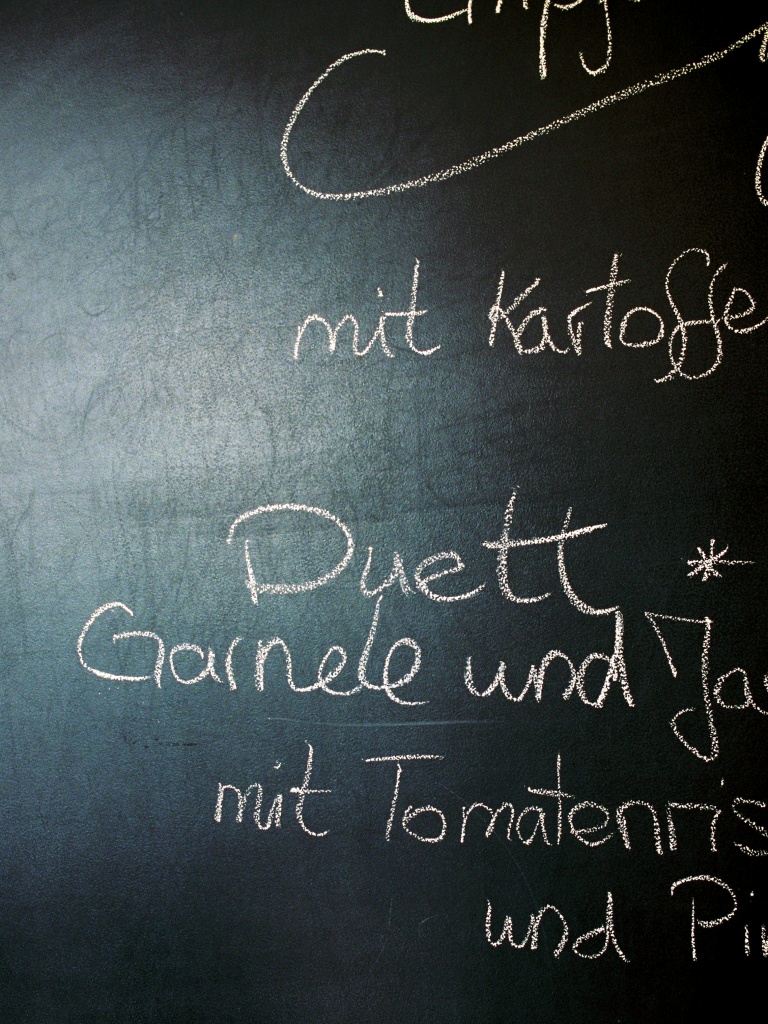 Empf
mit Kartoffe
Duett *
Garnele und Ja
mit Tomatenris
und Pi